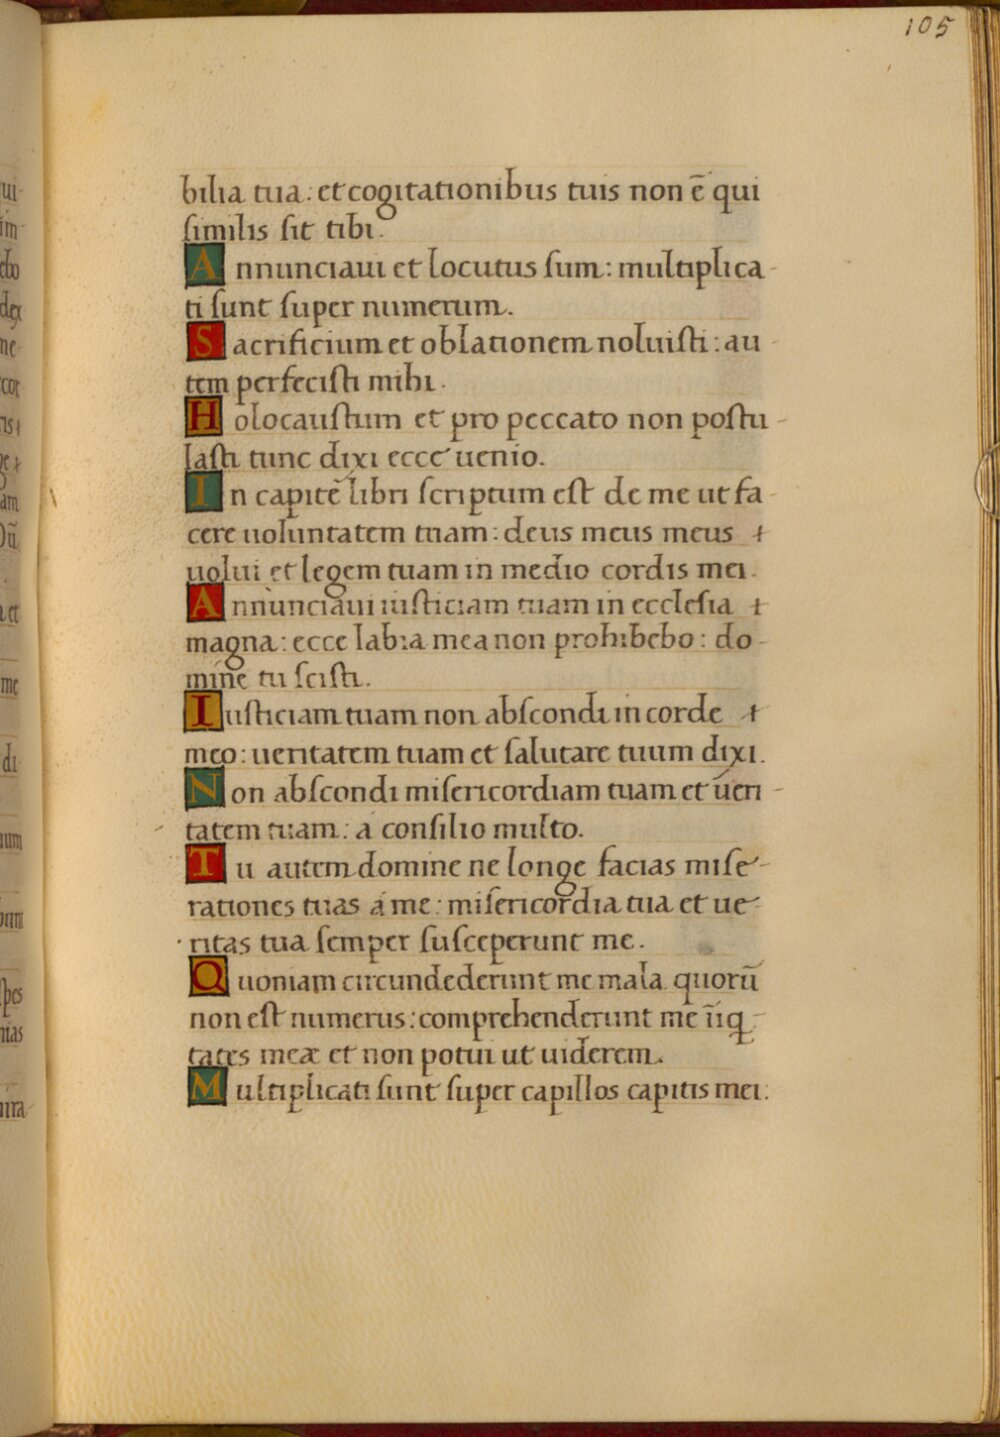 105
bilia tua: et cogitationibus tuis non ē qui
similis sit tibi.
Annunciaui et locutus sum: multiplica-
ti sunt super numerum.
Sacrificium et oblationem noluisti: au-
tem perfecisti mihi.
Holocaustum et pro peccato non postu-
lasti tunc dixi ecce uenio.
In capite libri scriptum est de me ut fa-
cere uoluntatem tuam: deus meus meus +
uolui et legem tuam in medio cordis mei.
Annunciaui iusticiam tuam in ecclesia +
magna: ecce labia mea non prohibebo: do-
mine tu scisti.
Iusticiam tuam non abscondi in corde +
meo: ueritatem tuam et salutare tuum dixi.
Non abscondi misericordiam tuam et ueri-
tatem tuam: a consilio multo.
Tu autem domine ne longe facias mise-
rationes tuas á me: misericordia tua et ue-
ritas tua semper susceperunt me.
Quoniam circundederunt me mala quorū
non est numerus: comprehenderunt me īiq-
tates meæ et non potui ut uiderem.
Multiplicati sunt super capillos capitis mei: